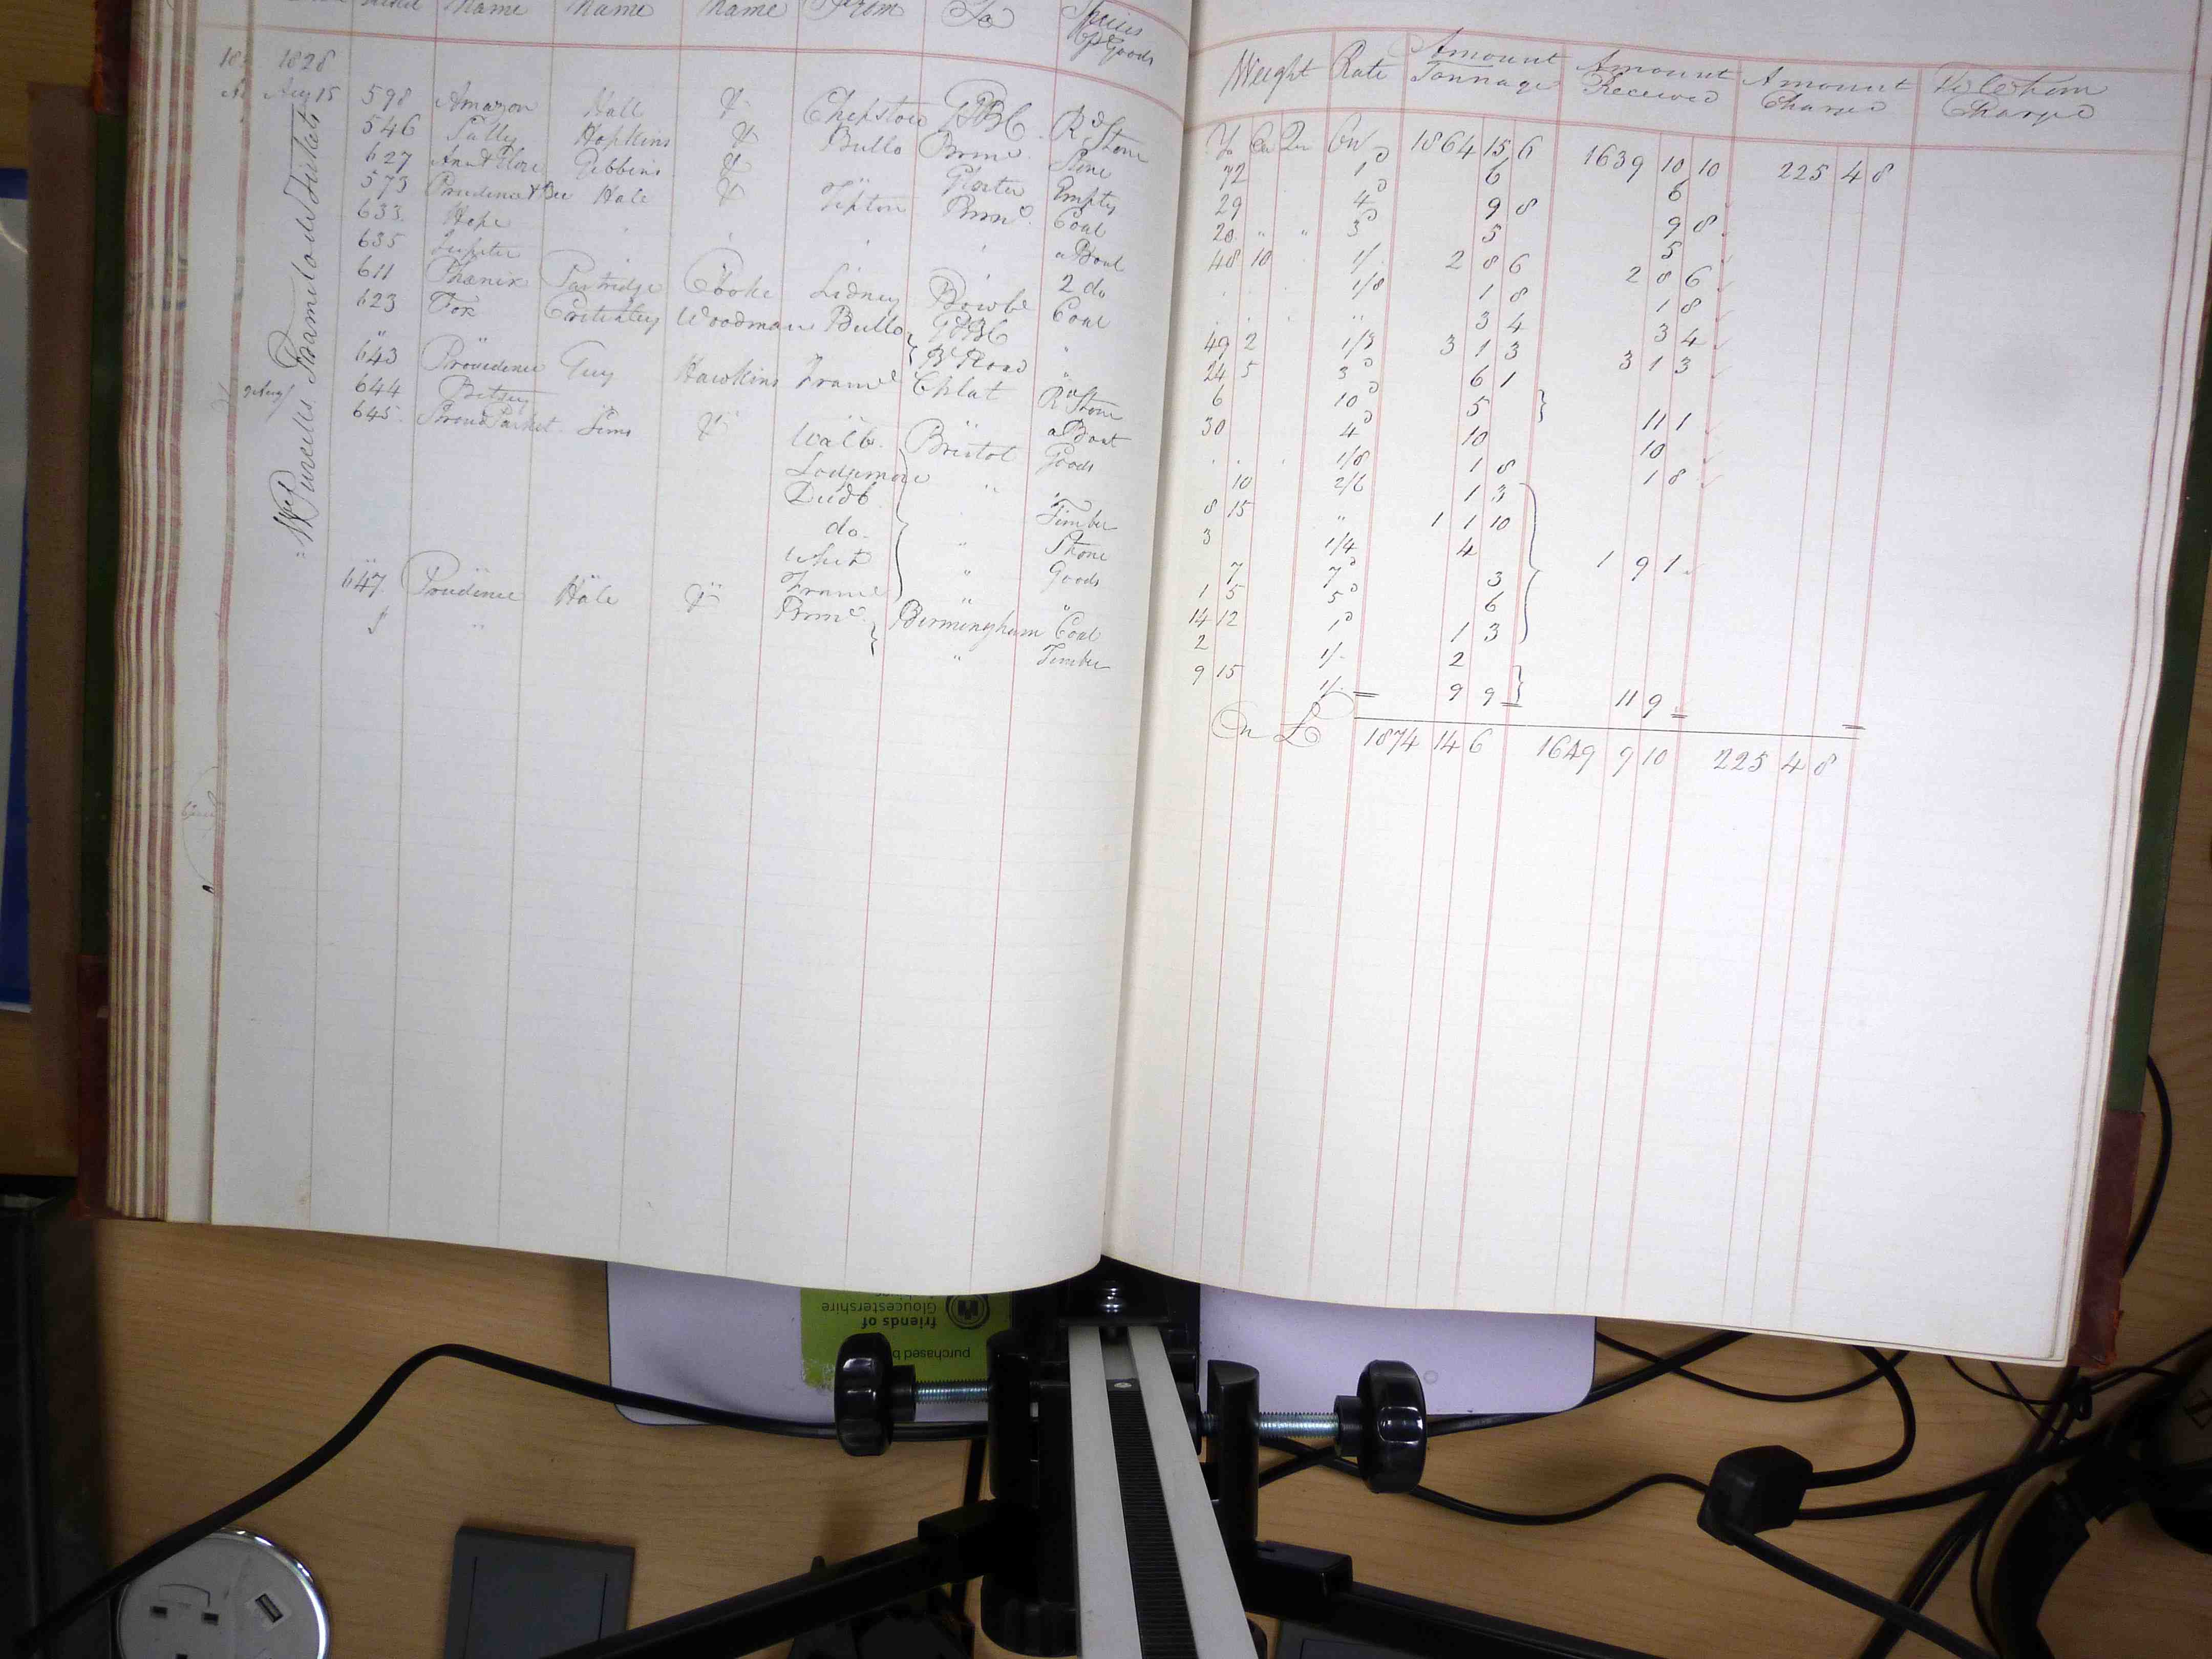 Name Name Name From To Species of Goods
Weight Rate Amount Tonnage Amount Received Amount Charged To Whom Charged
To Cw Qr On 1864 15 6 1639 10 10 225 4 8
1828
Mr Purcells Framilode Tickets
Aug 15 598 Amazon Hall Chepstow GBC Rd Stone 72 1d 6 6
546 Sally Hopkins Bullo Brimd Stone 29 4d 9 8 9 8
627 Ann & Glore Gibbins Gloster Empty 20 " " 3d 5 5
573 Prudence & Bee Hale Tipton Brimd Coal 48 10 1/- 2 8 6 2 8 6
633 Hope a Boat 1/8 1 8 1 8
635 Jupiter 2 do " 3 4 3 4
611 Phœnix Partridge Cooke Lidney Bowbe Coal 49 2 1/3 3 1 3 3 1 3
623 Fox Woodman Bullo GBC " 24 5 3d 6 1
" Bd Road " 6 10d 5 11 1
643 Providence Guy Hawkins Framd Chlat Rd Stone 30 4d 10 10
644 Betsey a Boat 1/8 1 8 1 8
645 Stroud Packet Sims Walb. Bristol Goods 10 2/6 1 3
Lodgemore " " 8 15 " 1 1 10
Dudb Timber 3 1/4 4
do " Stone 7 7d 3 1 9 1
Whit " Goods 1 5 5d 6
Framd " " 14 12 1d 1 3
647 Prudence Hale Brimd Birmingham Coal 2 1/- 2
" " Timber 9 15 1/- 9 9 11 9
On £ 1874 14 6 1649 9 10 225 4 8
friends of
Gloucestershire
purchased b